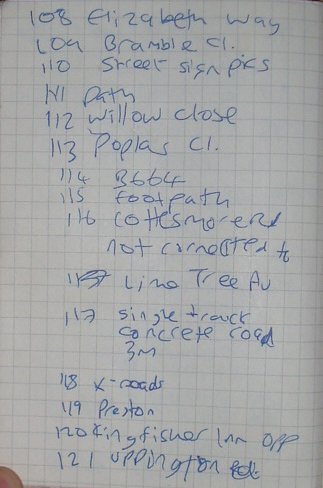 108 Elizabeth Way
109 Bramble Cl.
110 Street sign pics
111 path
112 Willow close
113 Poplar Cl.
114 B664
115 footpath
116 Cottesmore Rd
not connected to
Lime Tree Av
117 single track
concrete road
3m
118 X-roads
119 Preston
120 Kingfisher Inn opp
121 Uppington